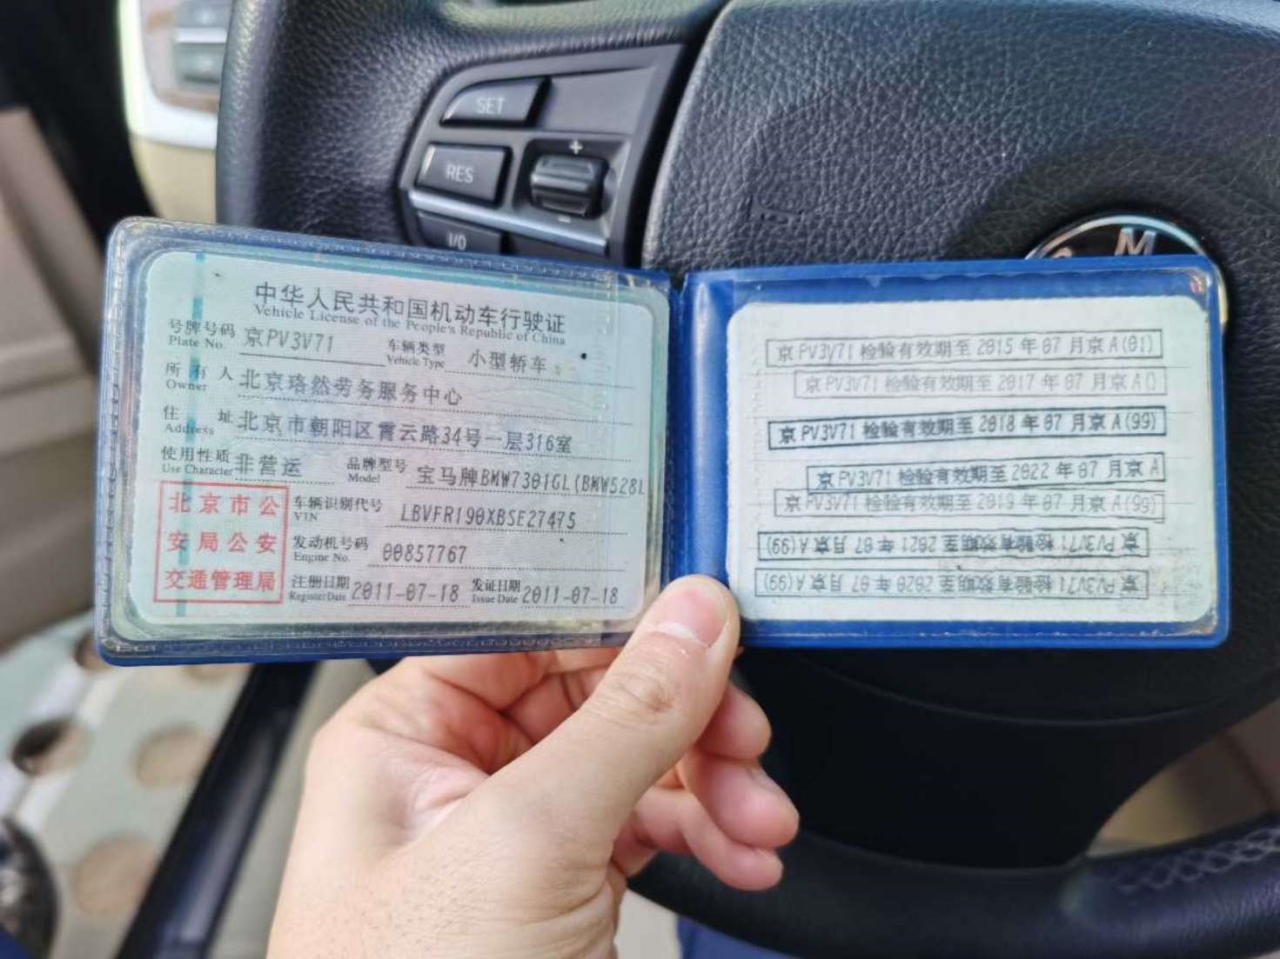 SET
+
RES
-
I/O
M
中华人民共和国机动车行驶证
Vehicle License of the People's Republic of China
号牌号码 京PV3V71 车辆类型 小型轿车
Plate No. Vehicle Type
所有人 北京珞然劳务服务中心
Owner
住址 北京市朝阳区霄云路34号一层316室
Address
使用性质 非营运 品牌型号 宝马牌BMW7301GL(BMW528L
Use Character Model
北京市公
安局公安
交通管理局
车辆识别代号 LBVFR190XBSE27475
VIN
发动机号码 00857767
Engine No.
注册日期 2011-07-18 发证日期 2011-07-18
Register Date Issue Date
京PV3V71 检验有效期至 2015 年 07 月京 A(01)
京PV3V71 检验有效期至 2017 年 07 月京 A()
京PV3V71 检验有效期至 2018 年 07 月京 A(99)
京PV3V71 检验有效期至 2022 年 07 月京 A
京PV3V71 检验有效期至 2019 年 07 月京 A(99)
京PV3V71 检验有效期至 2021 年 07 月京 A(99)
京PV3V71 检验有效期至 2020 年 07 月京 A(99)